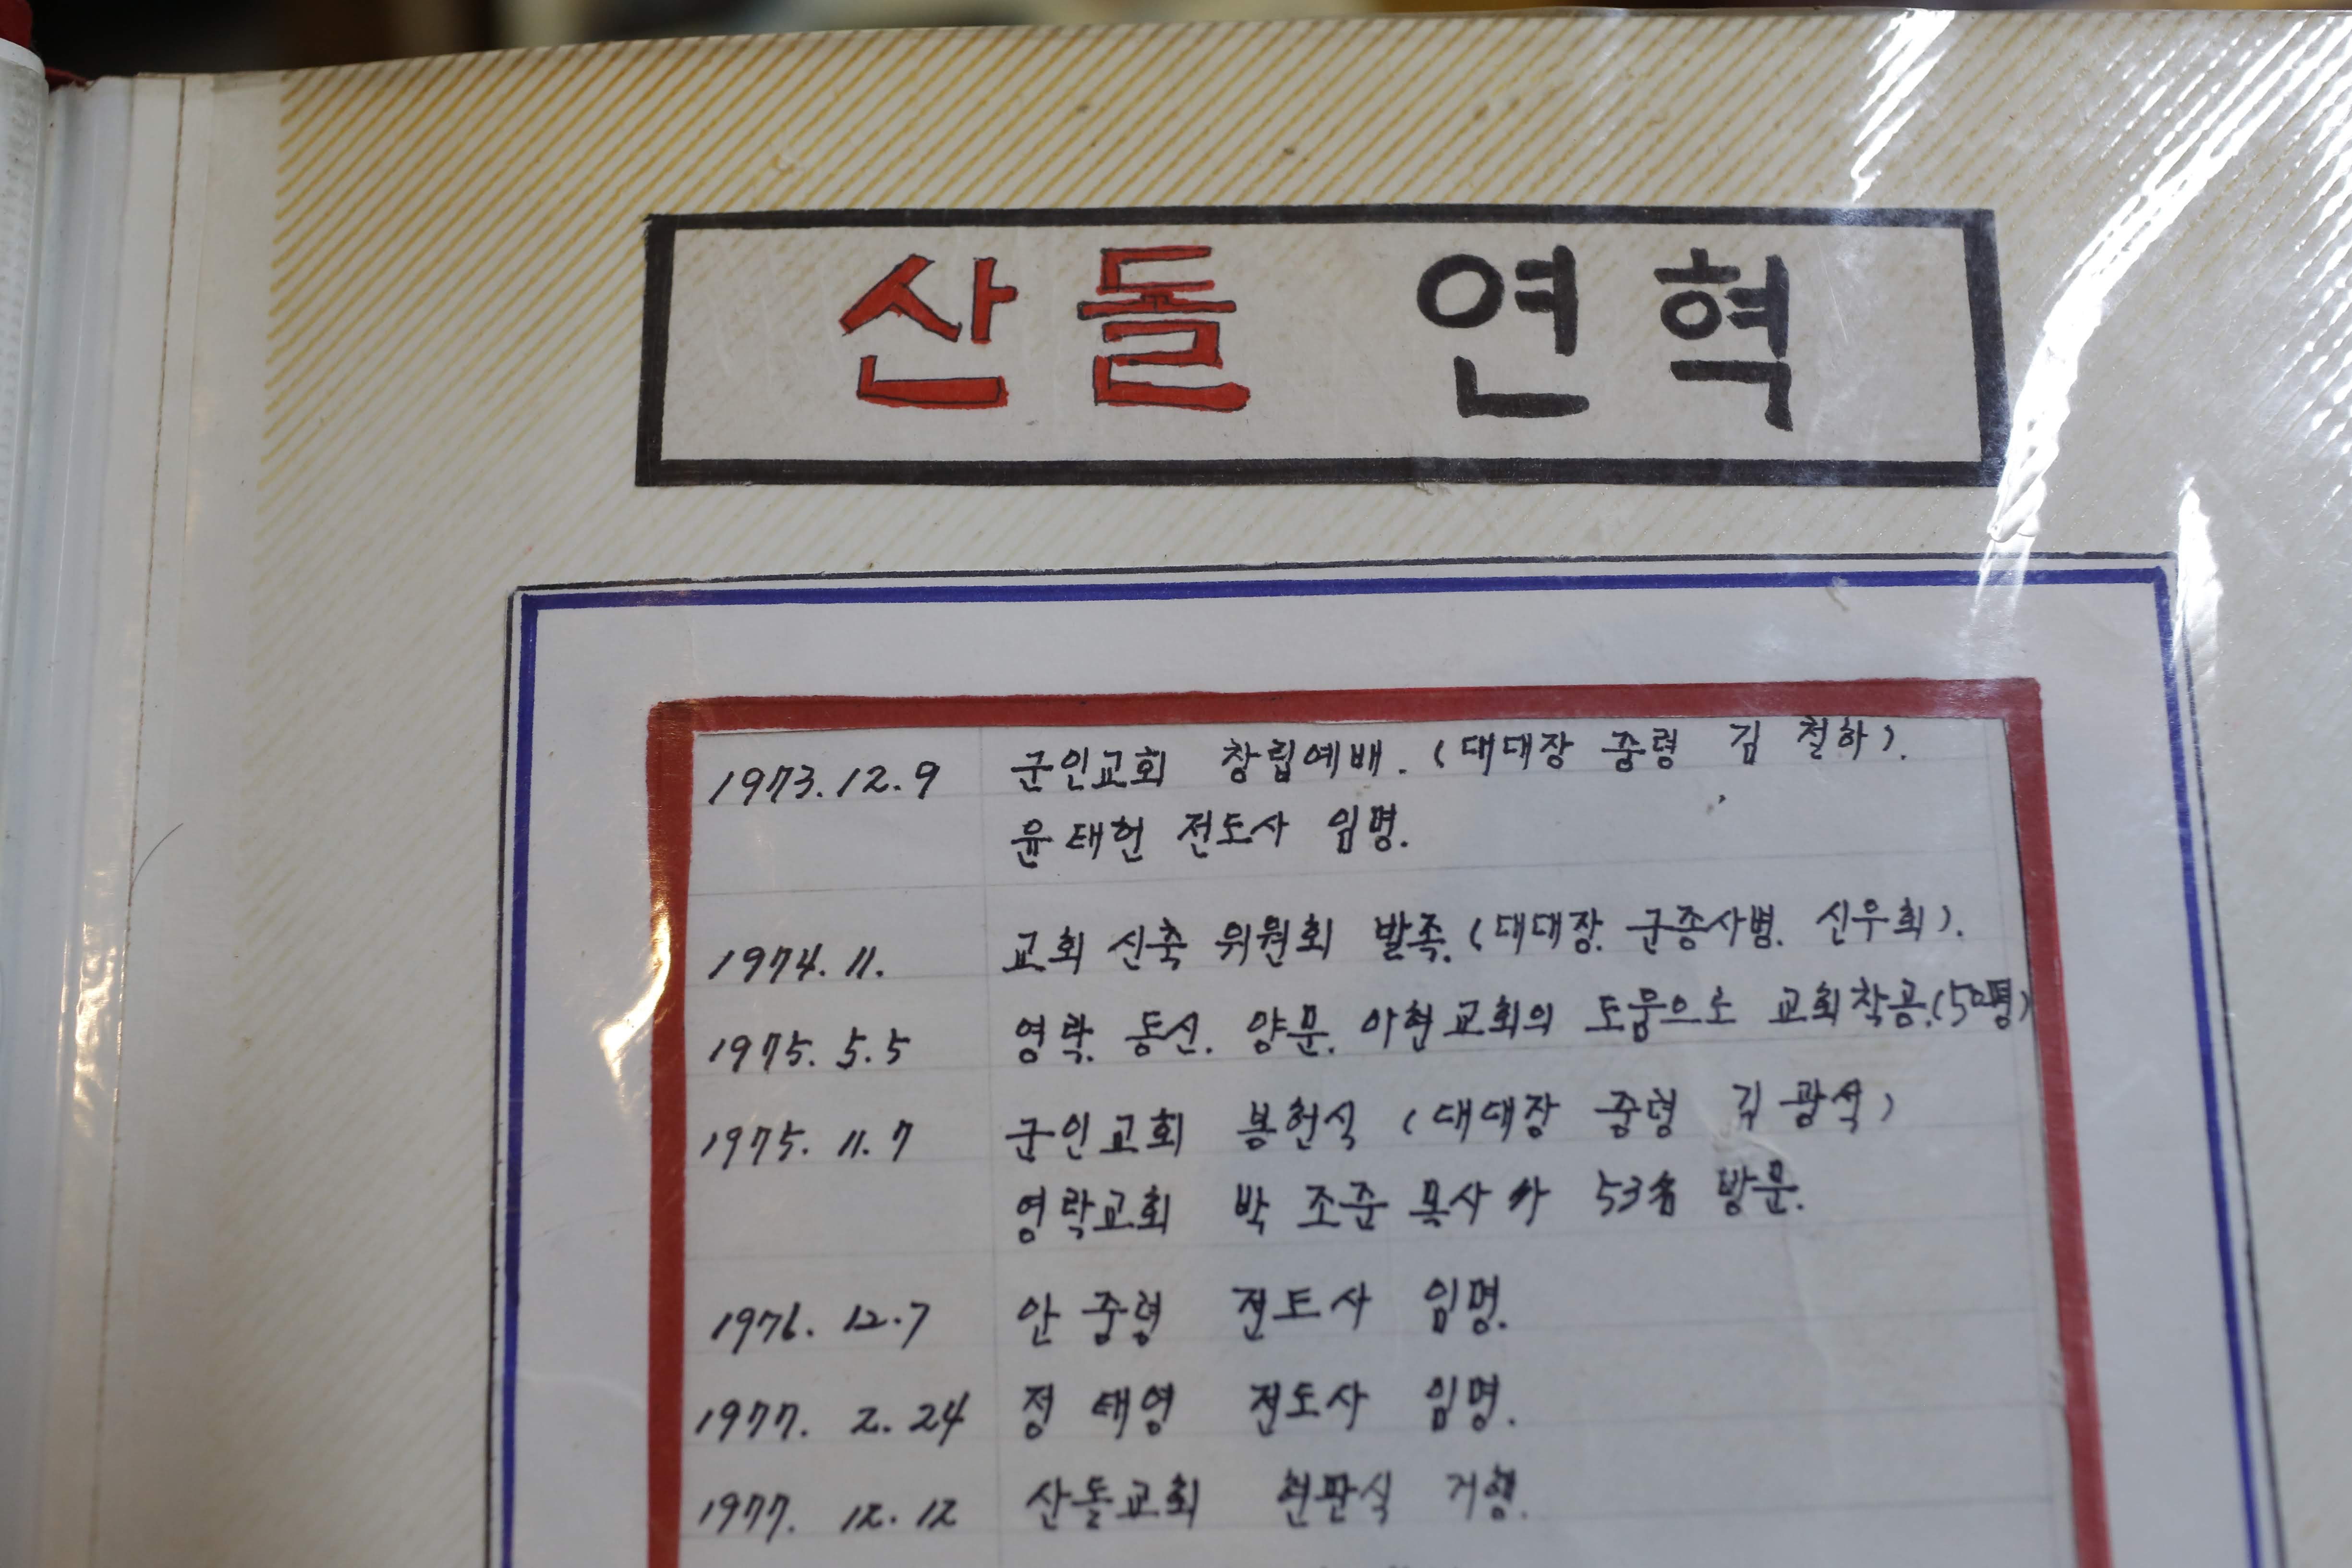 산돌 연혁
1973.12.9 군인교회 창립예배. (대대장 중령 김 철하).
윤태헌 전도사 임명.
1974. 11. 교회 신축 위원회 발족. (대대장. 군종사병. 신우회).
1975. 5. 5 영락. 동신. 양문. 아현교회의 도움으로 교회착공.(50평)
1975. 11. 7 군인교회 봉헌식 (대대장 중령 김광석)
영락교회 박 조준 목사 外 53名 방문.
1976. 12. 7 안중령 전도사 임명.
1977. 2. 24 정 태영 전도사 임명.
1977. 12. 12 산돌교회 현판식 거행.